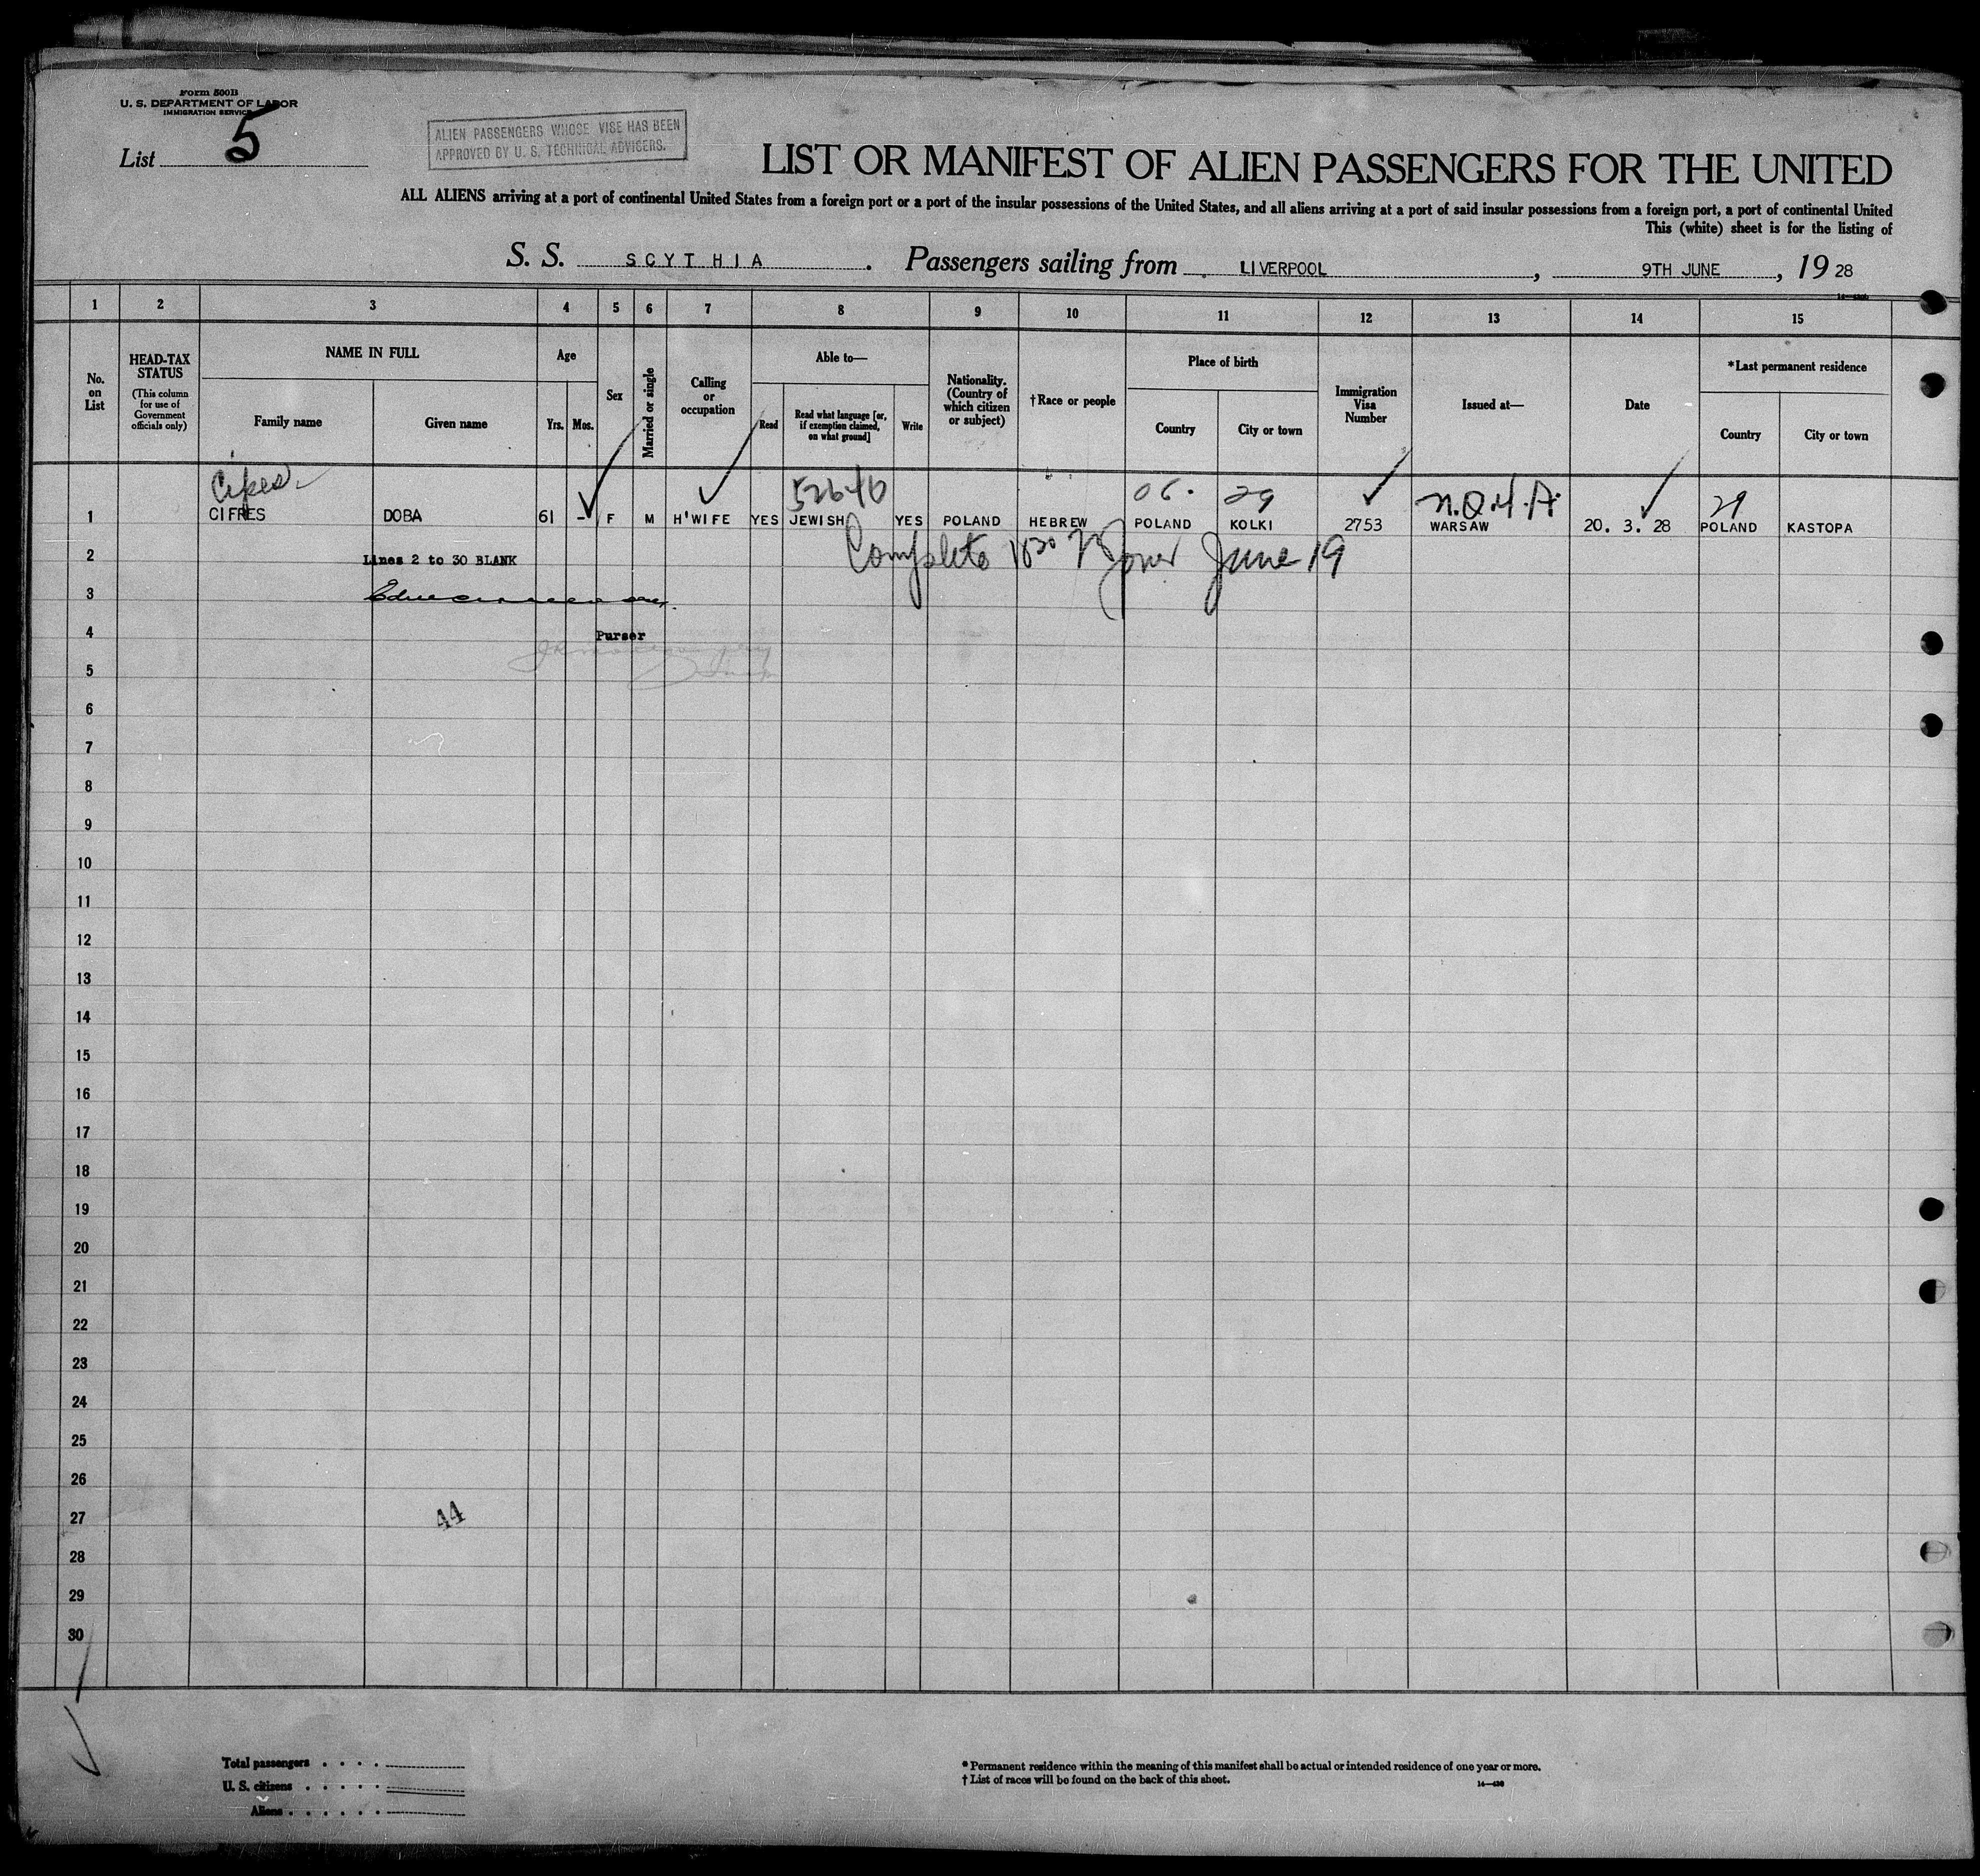 Form 500B
U. S. DEPARTMENT OF LABOR
IMMIGRATION SERVICE
List 5
ALIEN PASSENGERS WHOSE VISE HAS BEEN
APPROVED BY U. S. TECHNICAL ADVISERS.
LIST OR MANIFEST OF ALIEN PASSENGERS FOR THE UNITED
ALL ALIENS arriving at a port of continental United States from a foreign port or a port of the insular possessions of the United States, and all aliens arriving at a port of said insular possessions from a foreign port, a port of continental United
This (white) sheet is for the listing of
S. S. SCYTHIA. Passengers sailing from LIVERPOOL, 9TH JUNE, 19 28
1 2 3 4 5 6 7 8 9 10 11 12 13 14 15
No. on List
HEAD-TAX STATUS
(This column for use of Government officials only)
NAME IN FULL
Family name Given name
Age
Yrs. Mos.
Sex
Married or single
Calling or occupation
Able to—
Read
Read what language [or, if exemption claimed, on what ground]
Write
Nationality. (Country of which citizen or subject)
†Race or people
Place of birth
Country City or town
Immigration Visa Number
Issued at—
Date
*Last permanent residence
Country City or town
Cipes 52640 06. 29 N.Q.H.A. 29
1 CIFRES DOBA 61 - F M H'WIFE YES JEWISH YES POLAND HEBREW POLAND KOLKI 2753 WARSAW 20. 3. 28 POLAND KASTOPA
Complete June 19
2 Lines 2 to 30 BLANK
3
4 Purser
5
6
7
8
9
10
11
12
13
14
15
16
17
18
19
20
21
22
23
24
25
26
27 44
28
29
30
Total passengers . . . .
U. S. citizens . . . . .
Aliens . . . . . .
* Permanent residence within the meaning of this manifest shall be actual or intended residence of one year or more.
† List of races will be found on the back of this sheet.